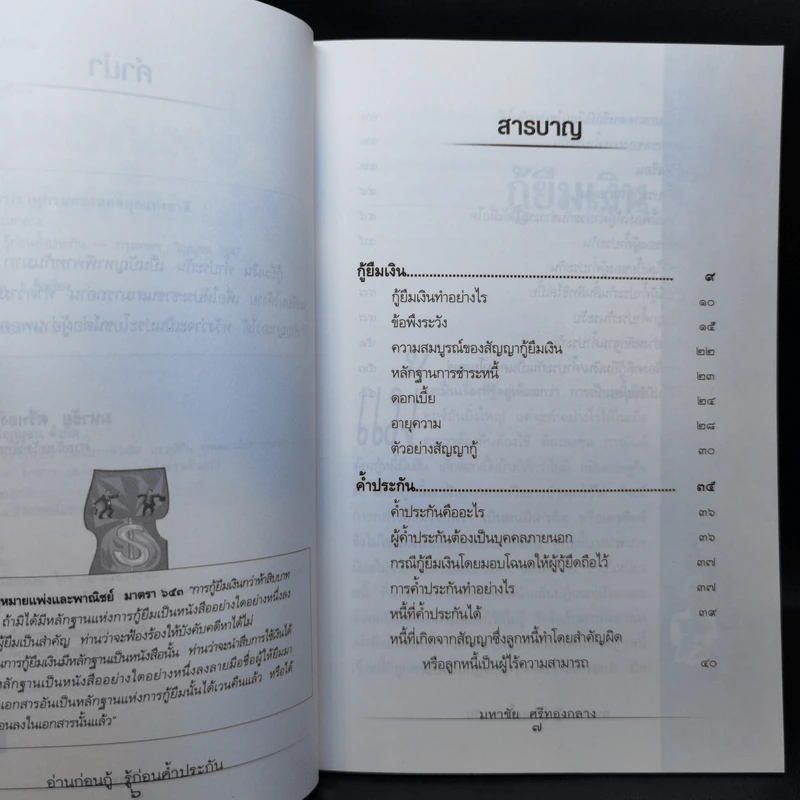 หมายแพ่งและพาณิชย์ มาตรา ๖๕๓ "การกู้ยืมเงินกว่าห้าสิบบาท
ถ้ามิได้มีหลักฐานแห่งการกู้ยืมเป็นหนังสืออย่างใดอย่างหนึ่งลง
ผู้ยืมเป็นสำคัญ ท่านว่าจะฟ้องร้องให้บังคับคดีหาได้ไม่
ในการกู้ยืมเงินมีหลักฐานเป็นหนังสือนั้น ท่านว่าจะนำสืบการใช้เงินได้
หลักฐานเป็นหนังสืออย่างใดอย่างหนึ่งลงลายมือชื่อผู้ให้ยืมมา
เอกสารอันเป็นหลักฐานแห่งการกู้ยืมนั้นได้เวนคืนแล้ว หรือได้
อนลงในเอกสารนั้นแล้ว"
อ่านก่อนกู้ รู้ก่อนค้ำประกัน
๖
สารบาญ
กู้ยืมเงิน ๙
กู้ยืมเงินทำอย่างไร ๑๐
ข้อพึงระวัง ๑๕
ความสมบูรณ์ของสัญญากู้ยืมเงิน ๒๒
หลักฐานการชำระหนี้ ๒๓
ดอกเบี้ย ๒๔
อายุความ ๒๘
ตัวอย่างสัญญากู้ ๓๐
ค้ำประกัน ๓๕
ค้ำประกันคืออะไร ๓๖
ผู้ค้ำประกันต้องเป็นบุคคลภายนอก ๓๖
กรณีกู้ยืมเงินโดยมอบโฉนดให้ผู้กู้ยึดถือไว้ ๓๗
การค้ำประกันทำอย่างไร ๓๗
หนี้ที่ค้ำประกันได้ ๓๙
หนี้ที่เกิดจากสัญญาซึ่งลูกหนี้ทำโดยสำคัญผิด
หรือลูกหนี้เป็นผู้ไร้ความสามารถ ๔๐
มหาชัย ศรีทองกลาง
๗